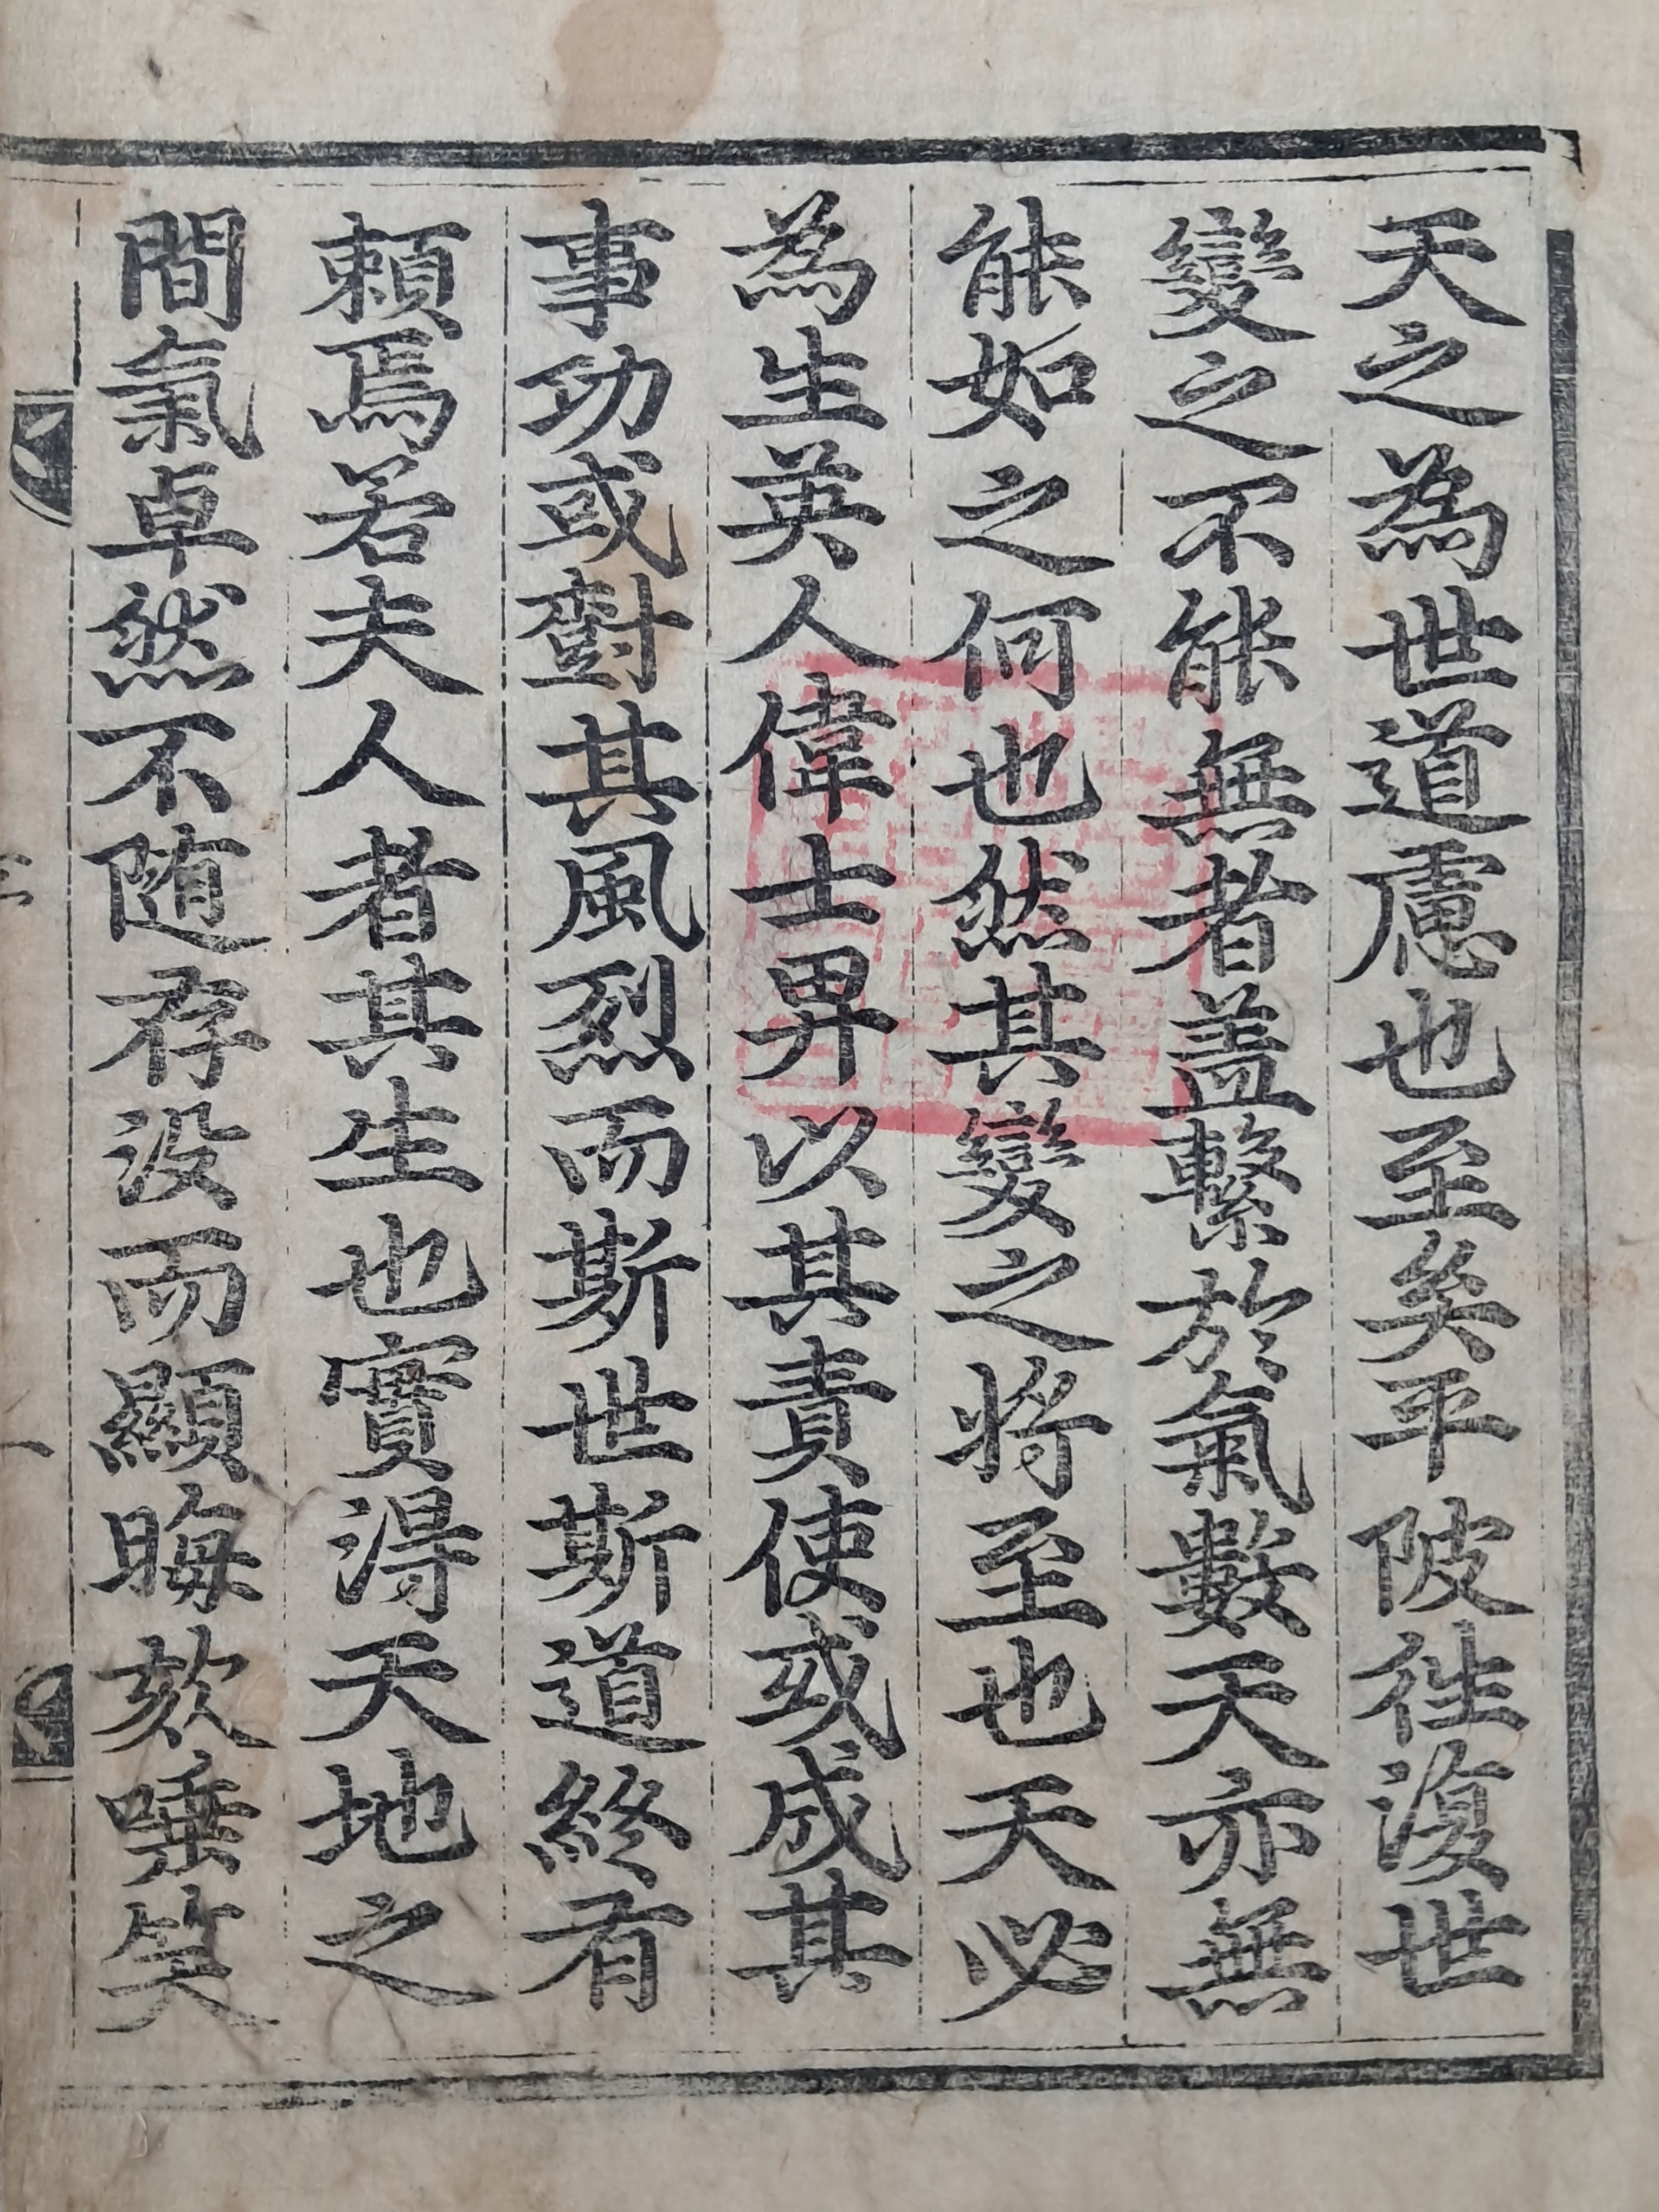 天之為世道慮也至矣平陂徃復世
變之不能無者盖繫於氣數天亦無
能如之何也然其變之將至也天必
為生英人偉士畀以其責使或成其
事功或對其風烈而斯世斯道終有
頼焉若夫人者其生也實得天地之
間氣卓然不随存没而顯晦欬唾笑